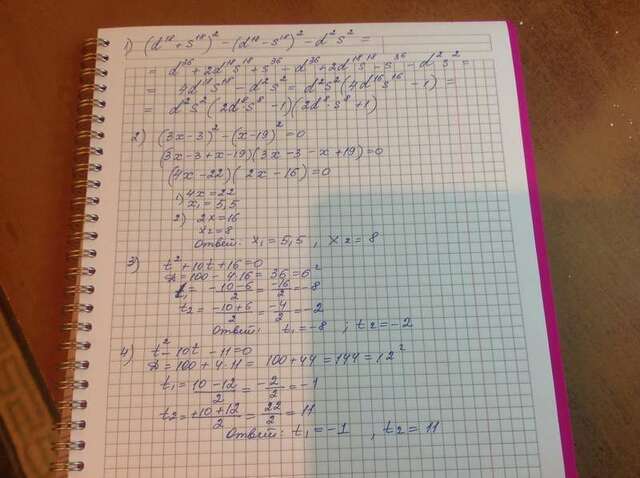 1) (d¹⁸ + s¹⁸)² - (d¹⁸ - s¹⁸)² - d²s² =
= d³⁶ + 2d¹⁸s¹⁸ + s³⁶ - d³⁶ + 2d¹⁸s¹⁸ - s³⁶ - d²s² =
= 4d¹⁸s¹⁸ - d²s² = d²s²(4d¹⁶s¹⁶ - 1) =
= d²s²(2d⁸s⁸ - 1)(2d⁸s⁸ + 1)
2) (3x-3)² - (x-19)² = 0
(3x-3+x-19)(3x-3-x+19) = 0
(4x-22)(2x-16) = 0
1) 4x = 22
x₁ = 5,5
2) 2x = 16
x₂ = 8
Ответ: x₁ = 5,5 , x₂ = 8
3) t² + 10t + 16 = 0
D = 100 - 4·16 = 36 = 6²
t₁ = -10-6/2 = -16/2 = -8
t₂ = -10+6/2 = -4/2 = -2
Ответ: t₁ = -8 ; t₂ = -2
4) t² - 10t - 11 = 0
D = 100 + 4·11 = 100 + 44 = 144 = 12²
t₁ = 10-12/2 = -2/2 = -1
t₂ = +10+12/2 = 22/2 = 11
Ответ: t₁ = -1 , t₂ = 11